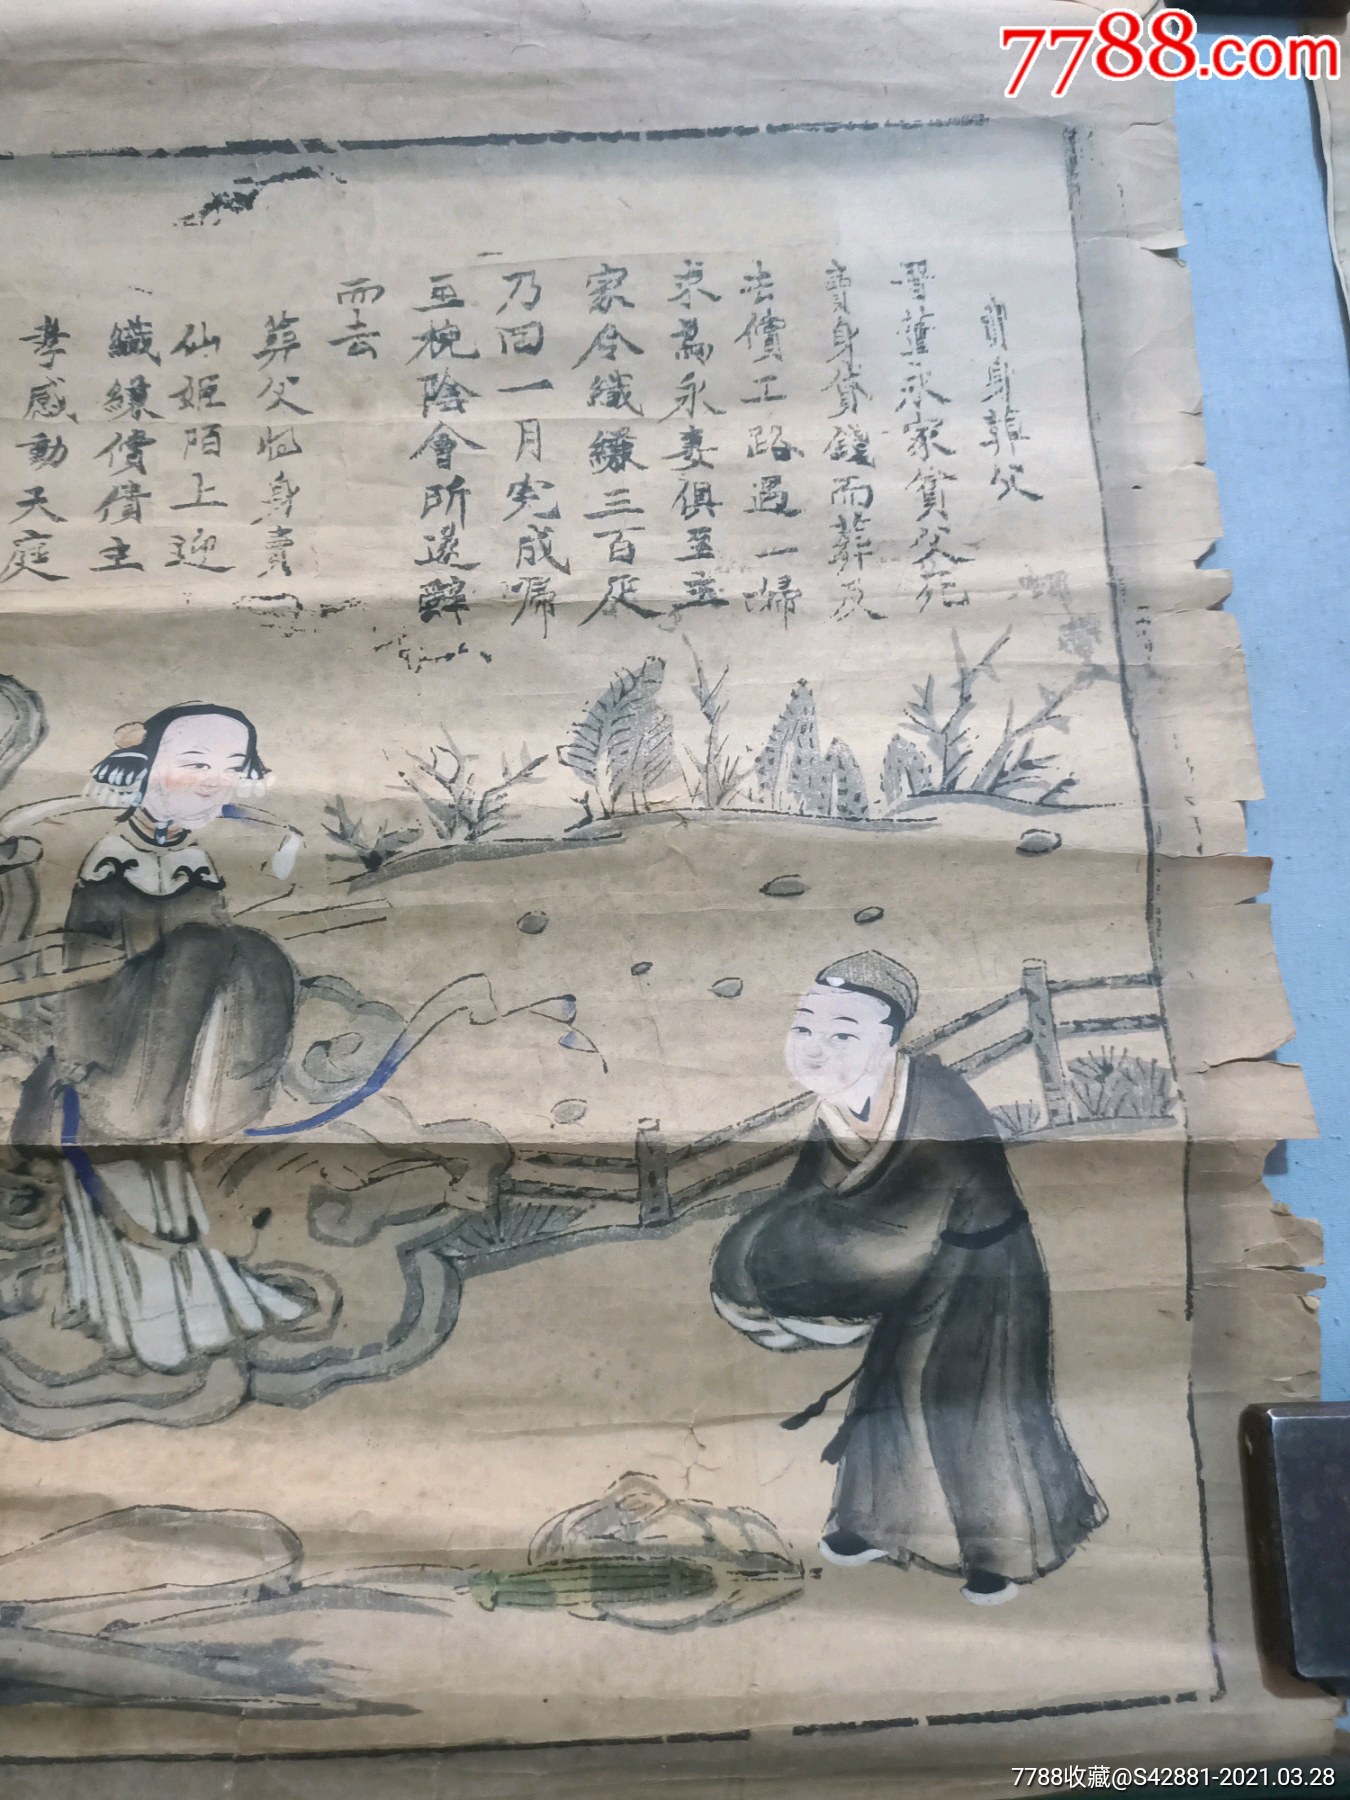 7788.com
賣身葬父
晋董永家貧父死
賣身貸錢而葬及
去償工路遇一婦
求為永妻俱至主
家令織縑三百疋
乃回一月完成歸
至槐陰會所遂辭
而去
葬父將身賣
仙姬陌上迎
織縑償債主
孝感動天庭
7788收藏@S42881-2021.03.28